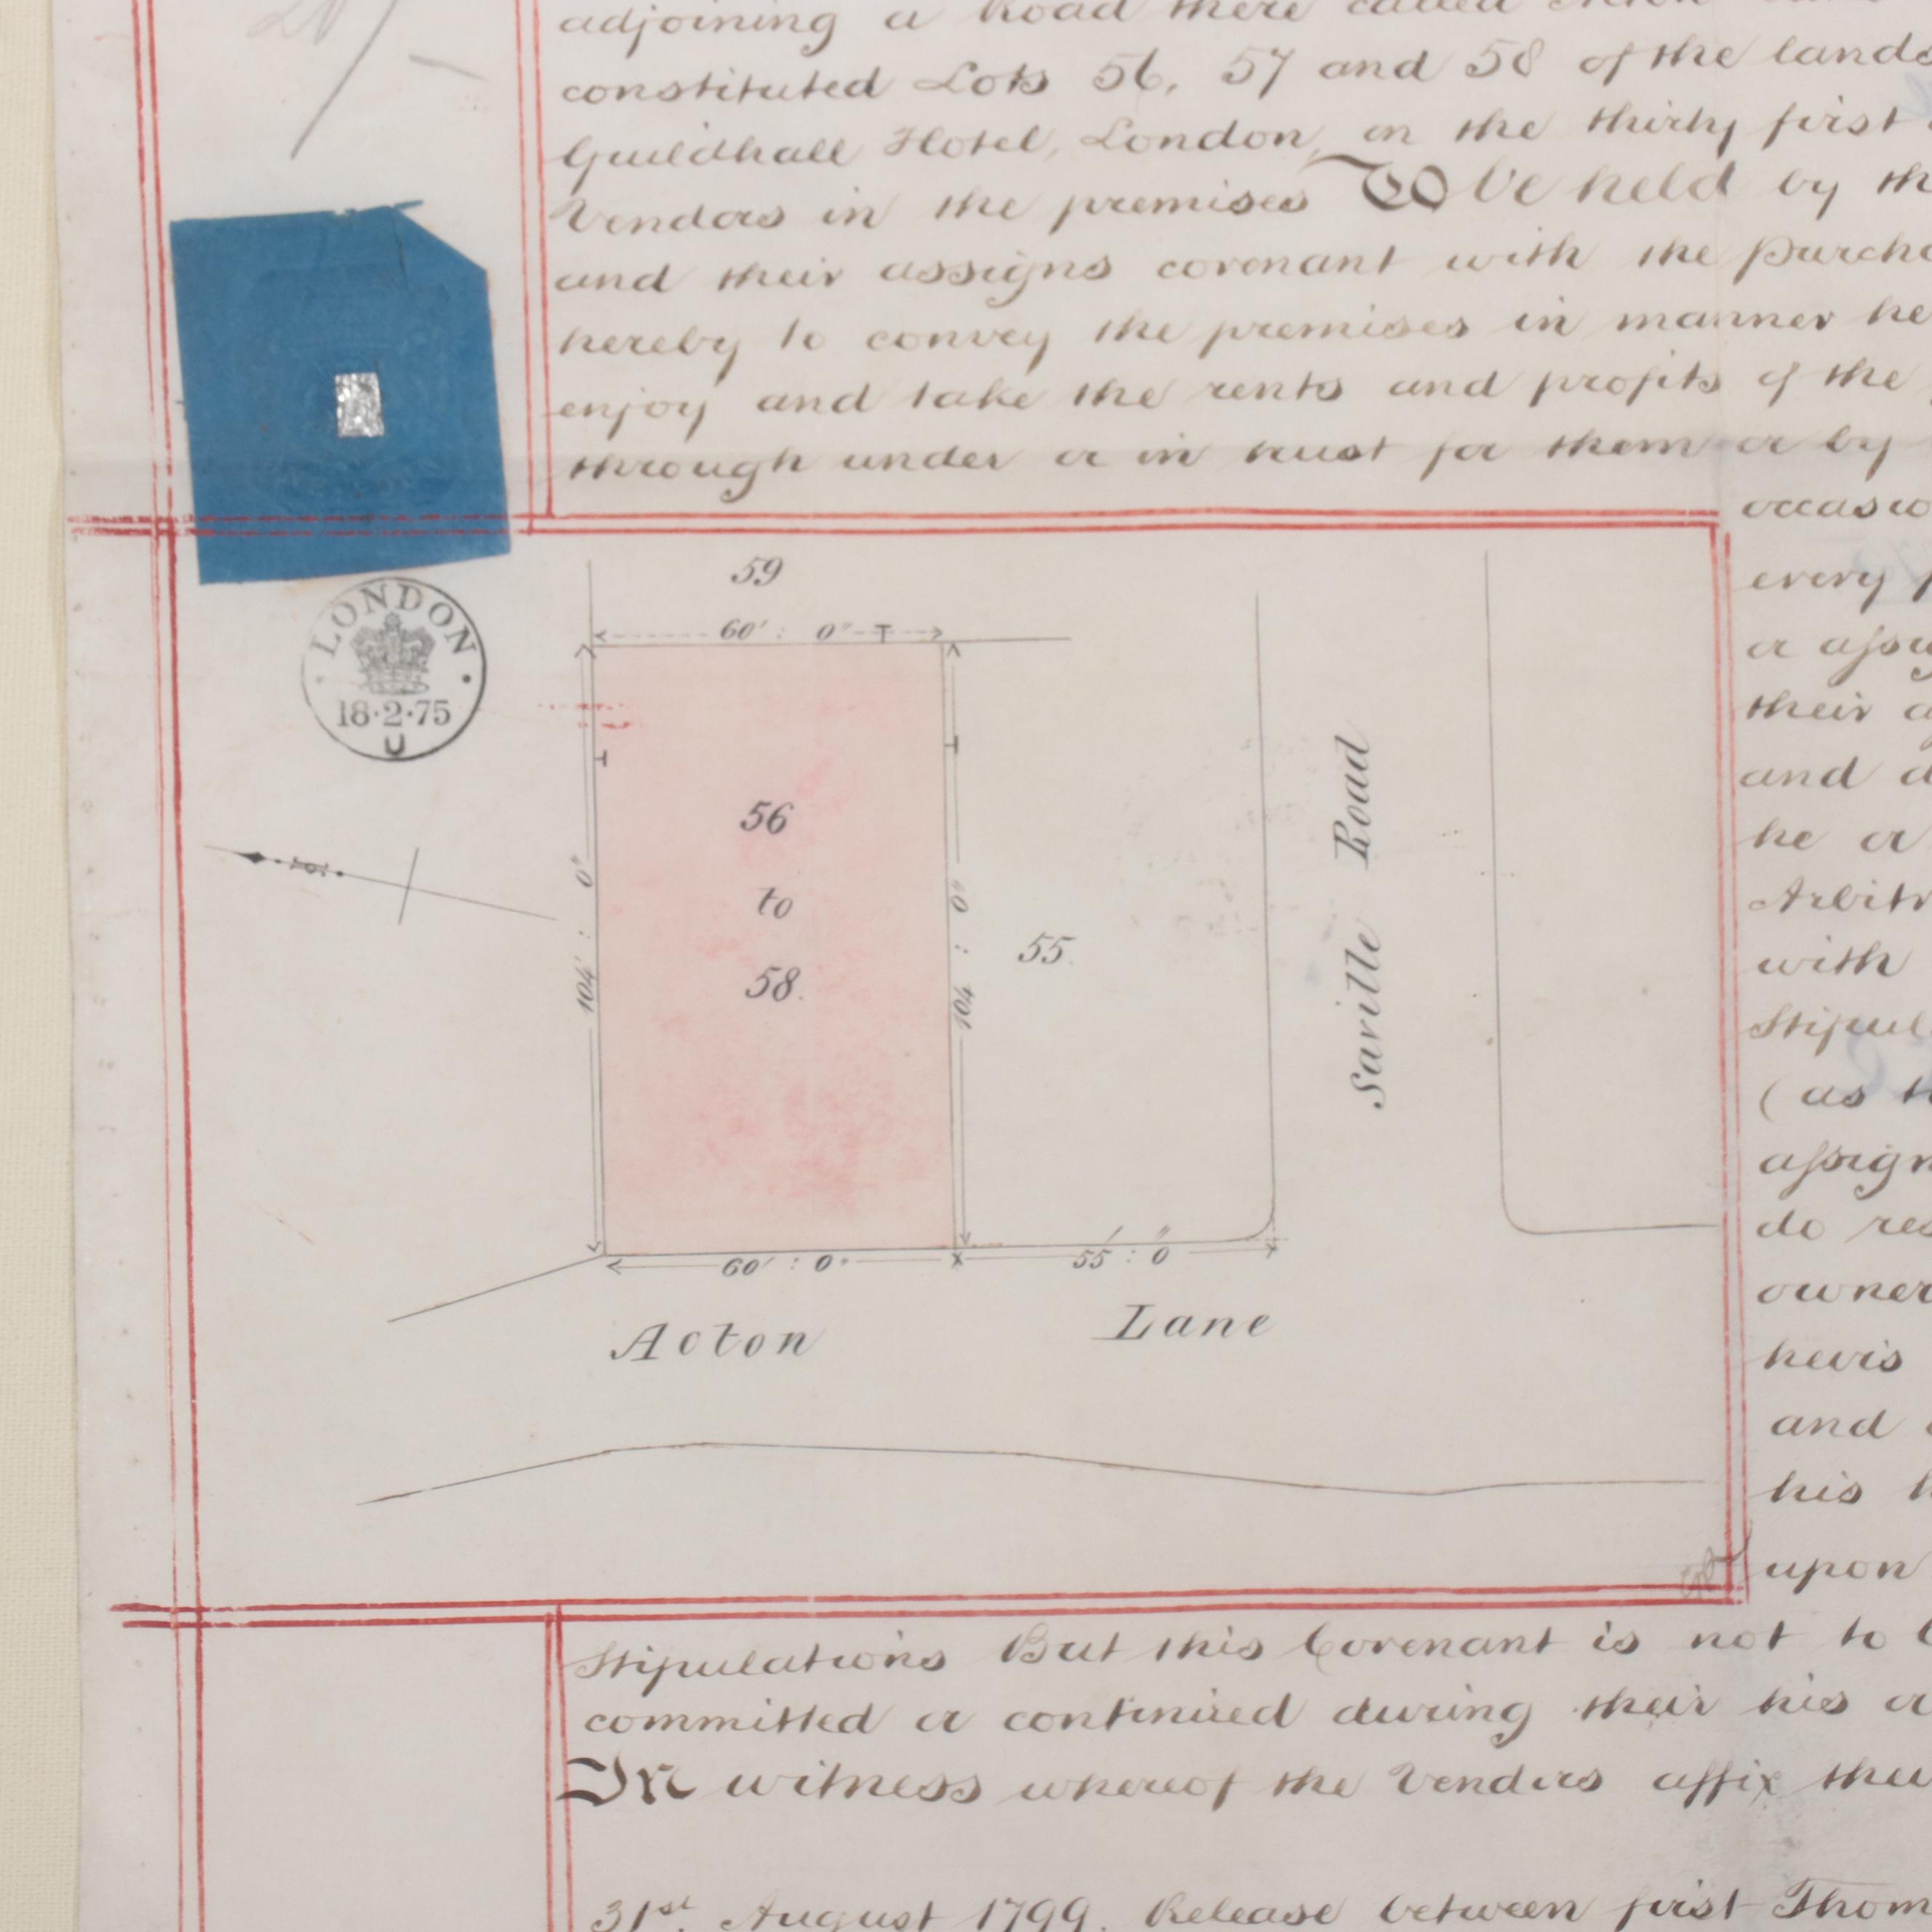 20/-
adjoining a Road there called Acton
constituted Lots 56, 57 and 58 of the lands
Guildhall Hotel, London, on the thirty first
Vendors in the premises To be held by th
and their assigns covenant with the Purcha
hereby to convey the premises in manner he
enjoy and take the rents and profits of the
through under or in trust for them or by
occasio
every p
or assig
their a
and d
he or
Arbitr
with
Stipul
(as t
assign
do res
owner
heirs
and
his h
upon
LONDON
18·2·75
U
59
60' : 0"
T
T
T
104' : 0"
56
to
58.
104 : 0"
55.
Saville Road
60' : 0"
55' : 0"
Acton Lane
Stipulations But this Covenant is not to
committed or continued during their his or
In witness whereof the Vendors affix thei
31st. August 1799. Release between first Thom